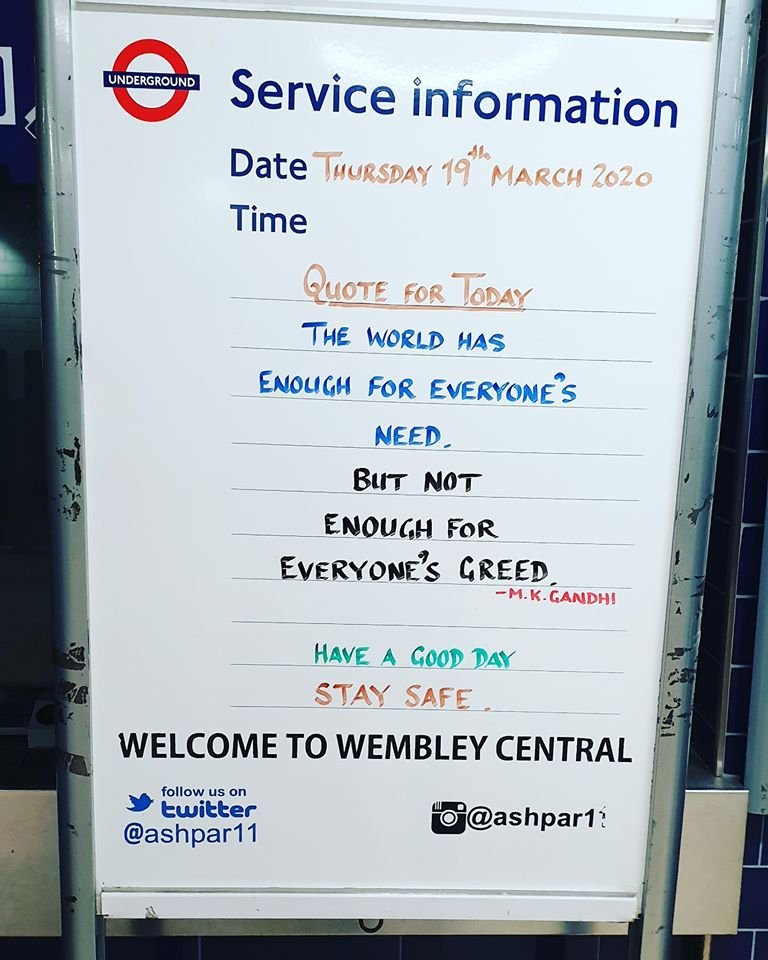 UNDERGROUND
Service information
Date THURSDAY 19th MARCH 2020
Time
QUOTE FOR TODAY
THE WORLD HAS
ENOUGH FOR EVERYONE'S
NEED.
BUT NOT
ENOUGH FOR
EVERYONE'S GREED.
-M.K.GANDHI
HAVE A GOOD DAY
STAY SAFE.
WELCOME TO WEMBLEY CENTRAL
follow us on
twitter
@ashpar11
@ashpar11